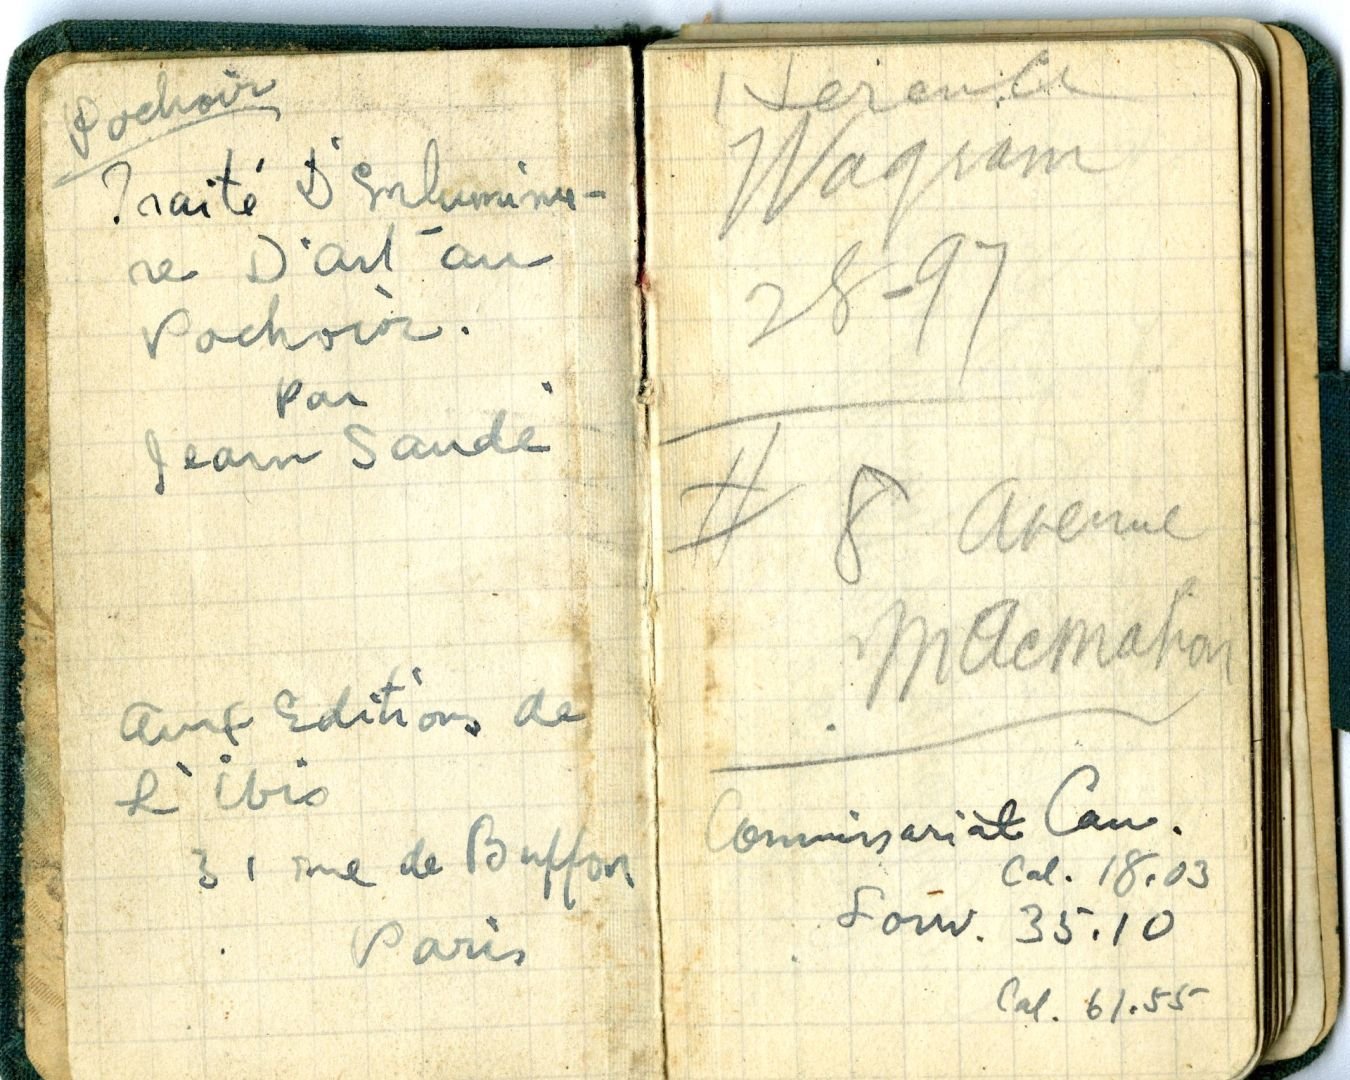 Pochoir
Traité D'Enluminu-
re D'art au
Pochoir.
par
Jean Saudé
Aux Editions de
L'ibis
31 rue de Buffon
Paris
Wagram
28-97
# 8 Avenue
MacMahon
Commissariat Can.
Cal. 18.03
Louv. 35.10
Cal. 61.55